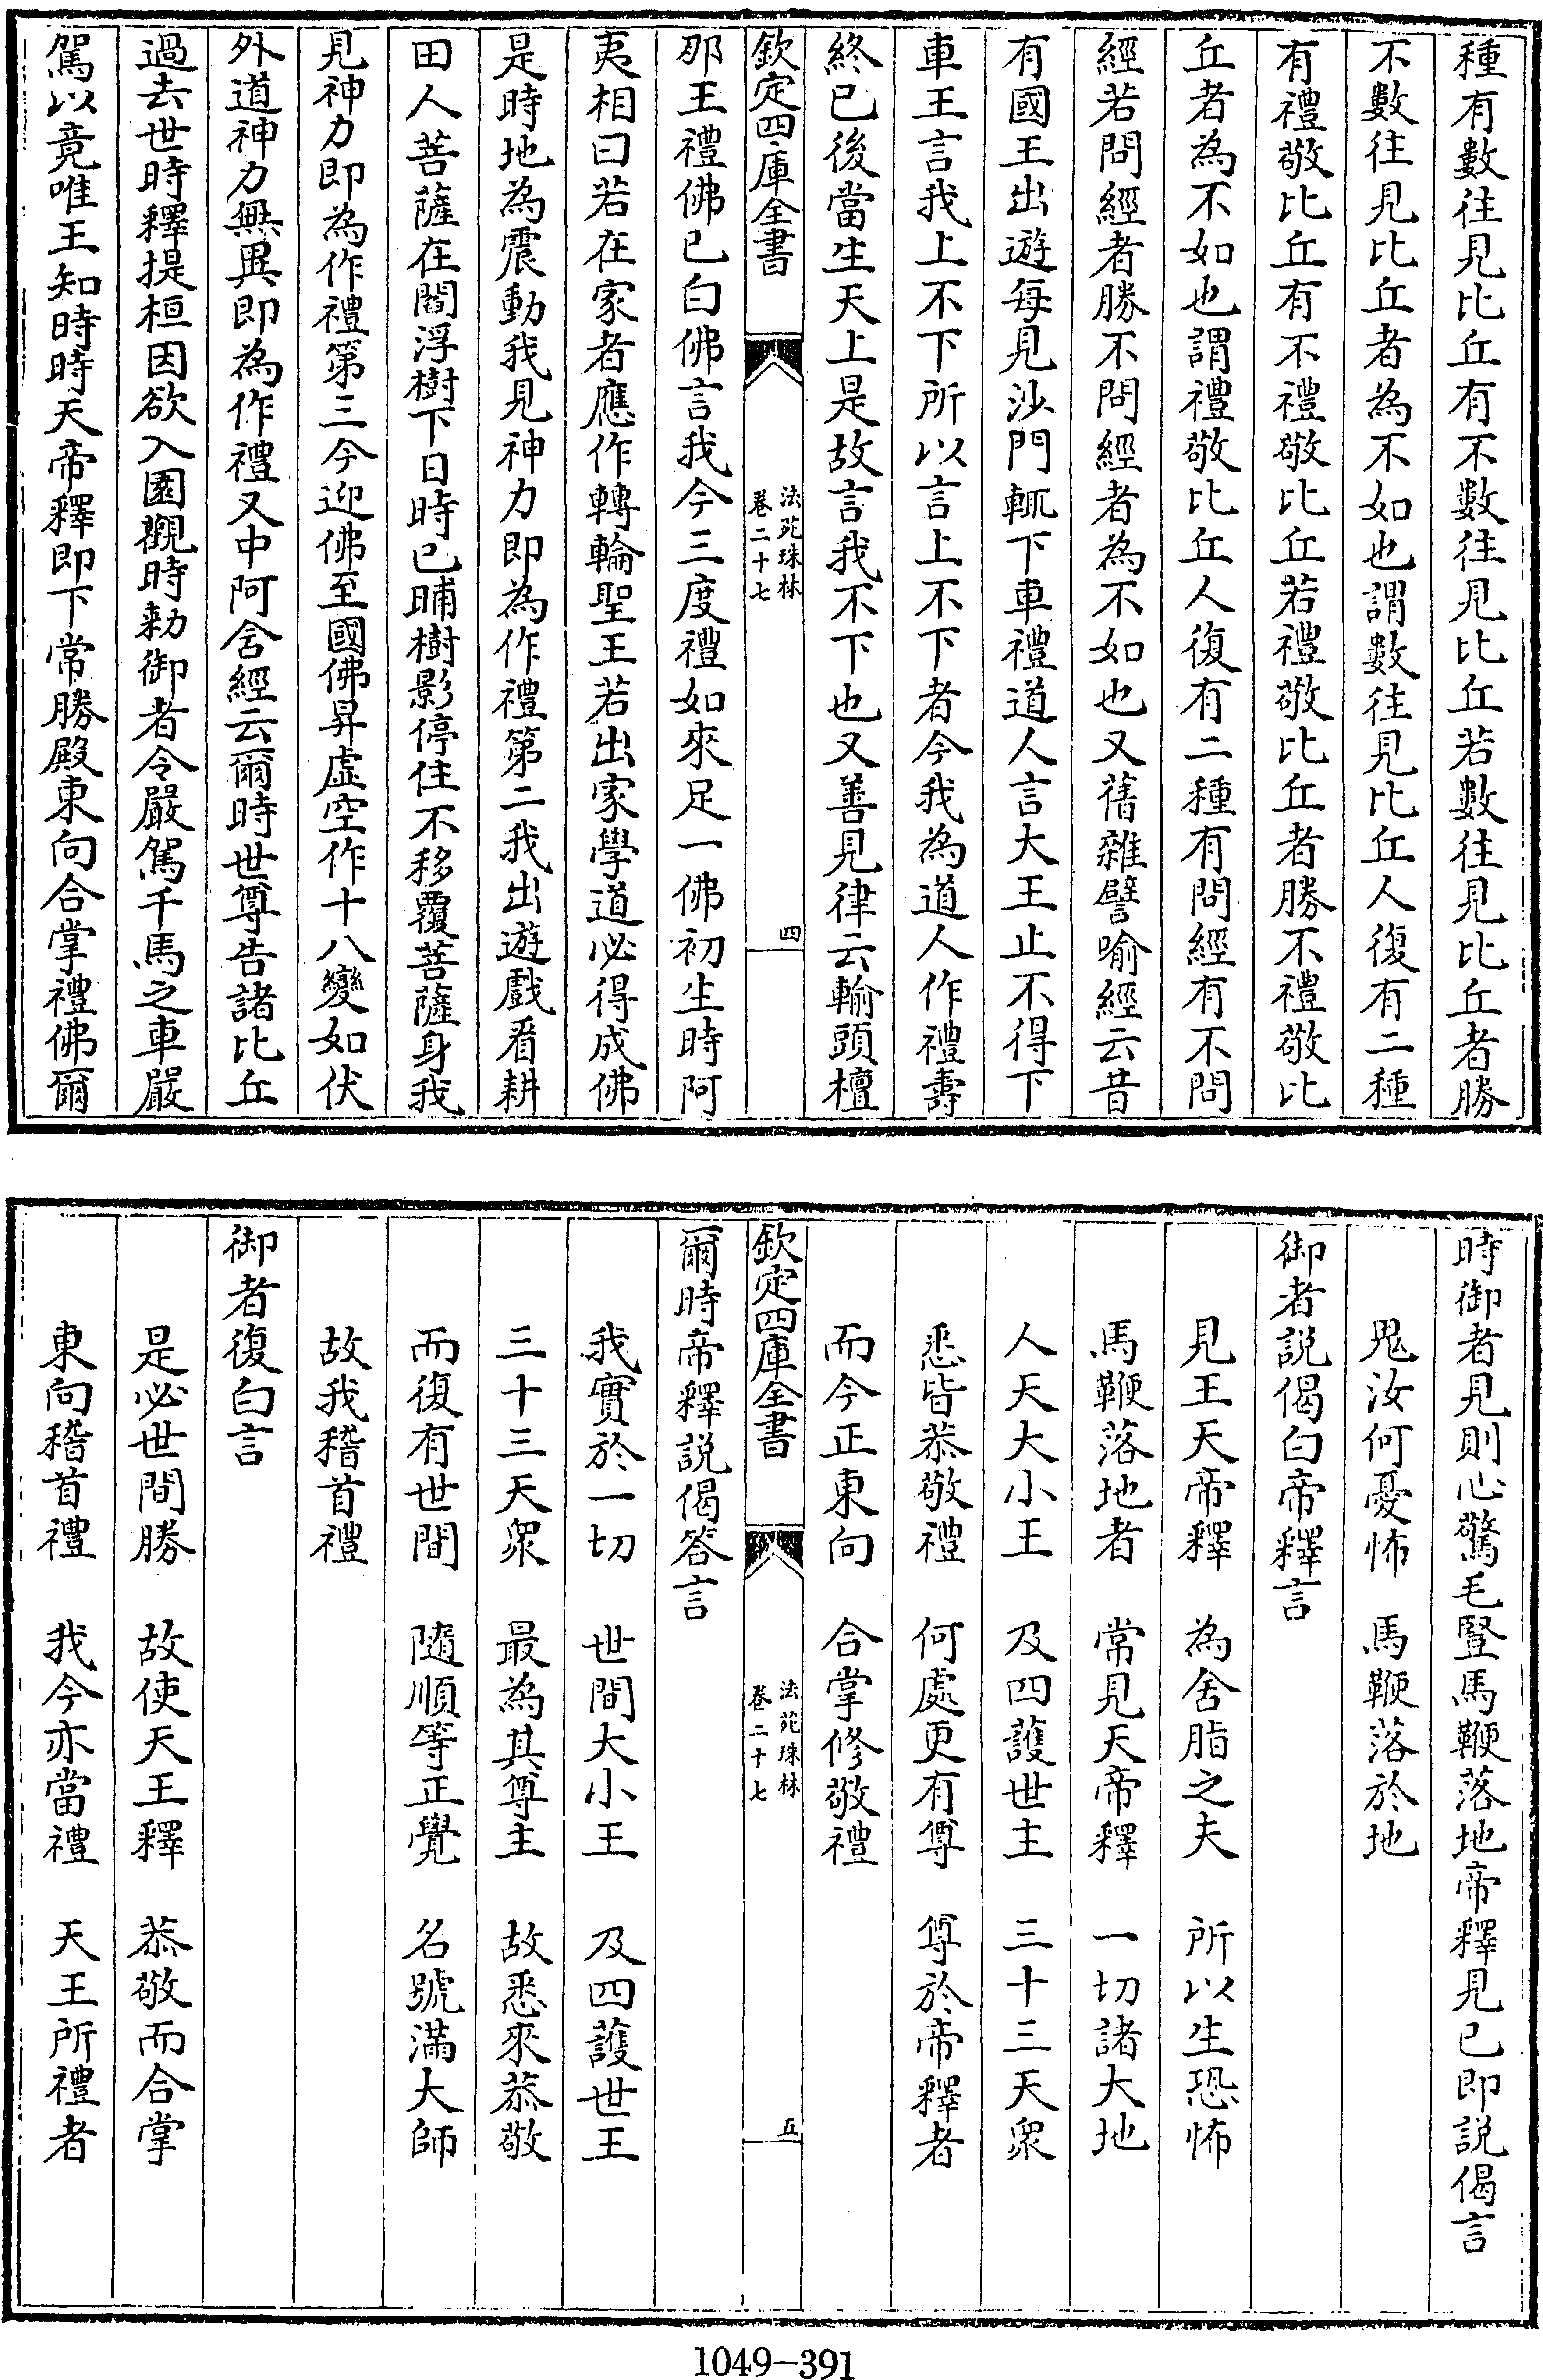 種有數往見比丘有不數往見比丘若數往見比丘者勝
不數往見比丘者為不如也謂數往見比丘人復有二種
有禮敬比丘有不禮敬比丘若禮敬比丘者勝不禮敬比
丘者為不如也謂禮敬比丘人復有二種有問經有不問
經若問經者勝不問經者為不如也又舊雜譬喻經云昔
有國王出遊每見沙門輒下車禮道人言大王止不得下
車王言我上不下所以言上不下者今我為道人作禮壽
終已後當生天上是故言我不下也又善見律云輸頭檀
欽定四庫全書
法苑珠林
卷二十七
四
那王禮佛已白佛言我今三度禮如來足一佛初生時阿
夷相曰若在家者應作轉輪聖王若出家學道必得成佛
是時地為震動我見神力即為作禮第二我出遊戲看耕
田人菩薩在閻浮樹下日時已晡樹影停住不移覆菩薩身我
見神力即為作禮第三今迎佛至國佛昇虛空作十八變如伏
外道神力無異即為作禮又中阿含經云爾時世尊告諸比丘
過去世時釋提桓因欲入園觀時勅御者令嚴駕千馬之車嚴
駕以竟唯王知時時天帝釋即下常勝殿東向合掌禮佛爾
時御者見則心驚毛豎馬鞭落地帝釋見已即說偈言
鬼汝何憂怖　馬鞭落於地
御者說偈白帝釋言
見王天帝釋　為舍脂之夫　所以生恐怖
馬鞭落地者　常見天帝釋　一切諸大地
人天大小王　及四護世主　三十三天眾
悉皆恭敬禮　何處更有尊　尊於帝釋者
而今正東向　合掌修敬禮
欽定四庫全書
法苑珠林
卷二十七
五
爾時帝釋說偈答言
我實於一切　世間大小王　及四護世王
三十三天眾　最為其尊主　故悉來恭敬
而復有世間　隨順等正覺　名號滿大師
故我稽首禮
御者復白言
是必世間勝　故使天王釋　恭敬而合掌
東向稽首禮　我今亦當禮　天王所禮者
1049-391